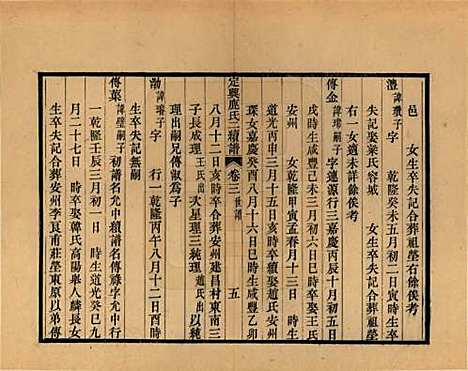 邑　女生卒失記合葬祖塋右餘俟考
澧諱瓊子　字　乾隆癸未五月初二日寅時生卒
失記娶葉氏容城　女生卒失記合葬祖塋
右一女適未詳餘俟考
傳金諱璨嗣子字蓮源行三嘉慶丙辰十月初五日
戌時生咸豐己未三月初十日午時卒娶王氏
安州　女乾隆甲寅孟春月十三日　時生
道光丙申三月十八日　時卒續娶趙氏安州
環女嘉慶癸酉八月十六日巳時生咸豐乙卯
定興鹿氏二續譜　卷三　世譜　五
八月十二日　時卒合葬安州建昌村東南三
子長成理王氏出次星理三純理趙氏出以純
理出嗣兄傳淑為子
渤諱瓊子　字　行一乾隆丙午八月十二日酉時
生卒失記無嗣
傳葉諱璧嗣子初譜名允中續譜名傳祿字允中行
一乾隆壬辰三月初一日　時生道光癸巳九
月二十七日　時卒娶韓氏高陽舉人麟長女
生卒失記合葬安州李艮甫莊塋東原以弟傳